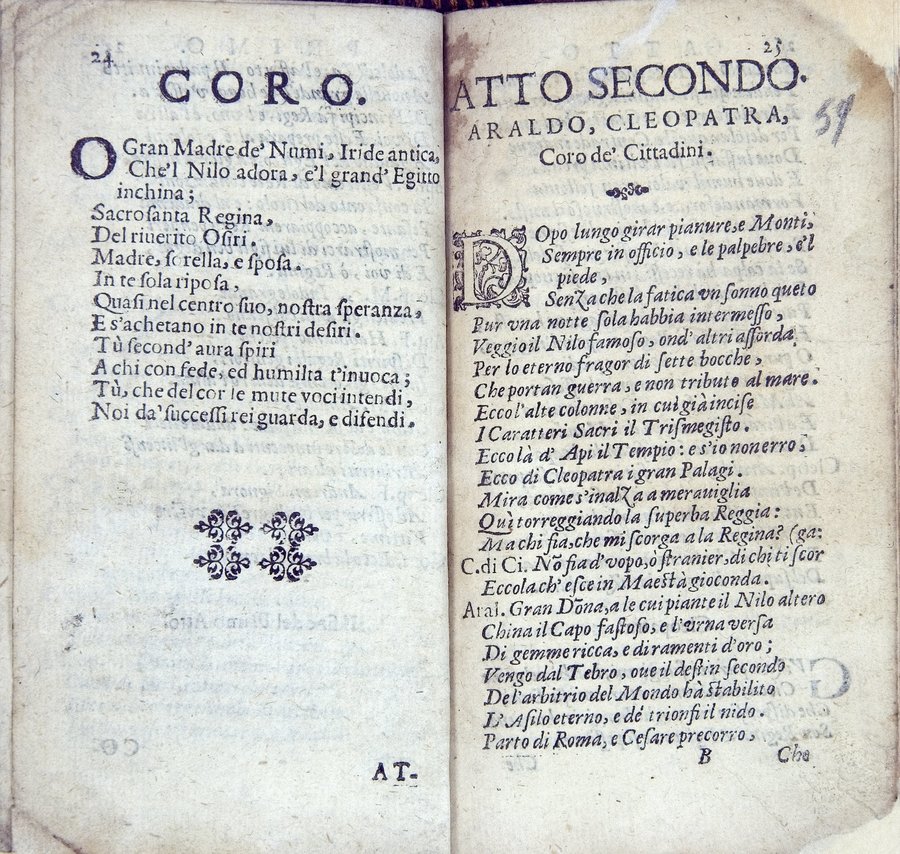 24
CORO.
O Gran Madre de' Numi, Iride antica,
Che'l Nilo adora, e'l grand' Egitto
inchina;
Sacrosanta Regina,
Del riuerito Osiri,
Madre, sorella, e sposa
In te sola riposa,
Quasi nel centro suo, nostra speranza,
E s'achetano in te nostri desiri.
Tù second' aura spiri
A chi con fede, ed humilta t'inuoca;
Tù, che del cor le mute voci intendi,
Noi da' successi rei guarda, e difendi.
AT-
25
ATTO SECONDO.
59
ARALDO, CLEOPATRA,
Coro de' Cittadini.
DOpo lungo girar pianure, e Monti,
Sempre in officio, e le palpebre, e'l
piede,
Senza che la fatica vn sonno queto
Pur vna notte sola habbia intermesso,
Veggio il Nilo famoso, ond' altri assorda
Per lo eterno fragor di sette bocche,
Che portan guerra, e non tributo al mare.
Ecco l'alte colonne, in cui già incise
I Caratteri Sacri il Trismegisto.
Ecco là d' Api il Tempio: e s'io non erro,
Ecco di Cleopatra i gran Palagi.
Mira come s'inalza a merauiglia
Quì torreggiando la superba Reggia:
Ma chi fia, che mi scorga a la Regina? (ga:
C.di Ci. Nō fia d'vopo, ò stranier, di chi ti scor
Eccola ch' esce in Maestà gioconda.
Aral. Gran Dōna, a le cui piante il Nilo altero
China il Capo fastoso, e l'vrna versa
Di gemme ricca, e di ramenti d'oro;
Vengo dal Tebro, oue il destin secondo
De l'arbitrio del Mondo hà stabilito
L'Asilo eterno, e de' trionfi il nido.
Parto di Roma, e Cesare precorro,
B
Che